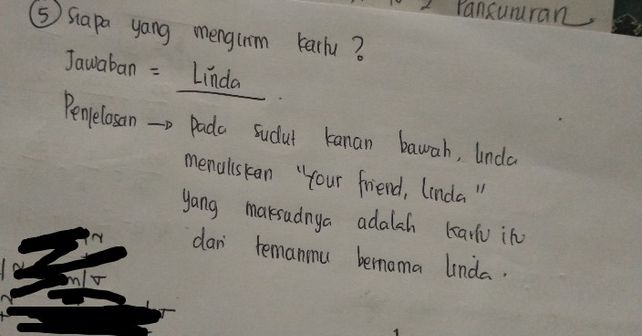 Pansururan
⑤ Siapa yang mengirim kartu ?
Jawaban = Linda .
Penjelasan → Pada sudut kanan bawah, linda
menuliskan "Your friend, linda"
yang maksudnya adalah kartu itu
dari temanmu bernama linda .